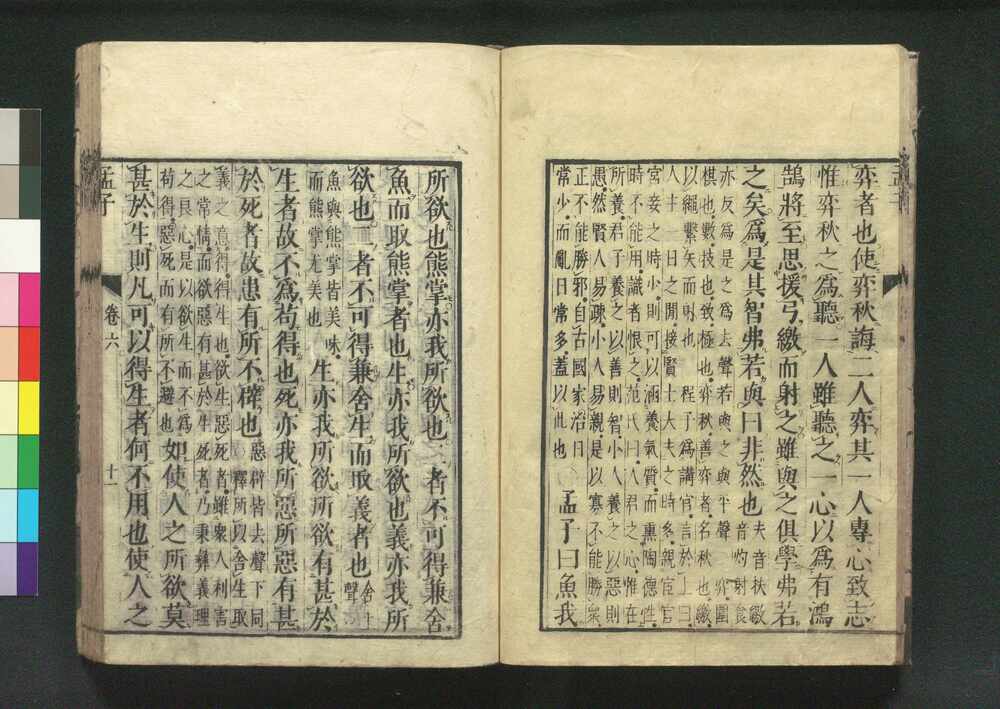 弈者也使弈秋誨二人弈其一人專心致志
惟弈秋之爲聽一人雖聽之一心以爲有鴻
鵠將至思援弓繳而射之雖與之俱學弗若
之矣爲是其智弗若與曰非然也
夫音扶繳
音灼射食
亦反爲是之爲去聲若與之與平聲 弈圍
棋也數技也致極也弈秋善弈者名秋也繳
以繩繫矢而射也 程子爲講官言於上曰
人主一日之閒接賢士大夫之時多親宦官
宮妾之時少則可以涵養氣質而熏陶德性
時不能用識者恨之范氏曰人君之心惟在
所養君子養之以善則智小人養之以惡則
愚然賢人易疎小人易親是以寡不能勝衆
正不能勝邪自古國家治日
常少而亂日常多蓋以此也
孟子曰魚我
所欲也熊掌亦我所欲也二者不可得兼舍
魚而取熊掌者也生亦我所欲也義亦我所
欲也二者不可得兼舍生而取義者也
舍上
聲
魚與熊掌皆美味
而熊掌尤美也
生亦我所欲所欲有甚於
生者故不爲苟得也死亦我所惡所惡有甚
於死者故患有所不辟也
惡辟皆去聲下同
釋所以舍生取
義之意得得生也欲生惡死者雖衆人利害
之常情而欲惡有甚於生死者乃秉彝義理
之良心是以欲生而不爲
苟得惡死而有所不避也
如使人之所欲莫
甚於生則凡可以得生者何不用也使人之
孟子
卷六
十一